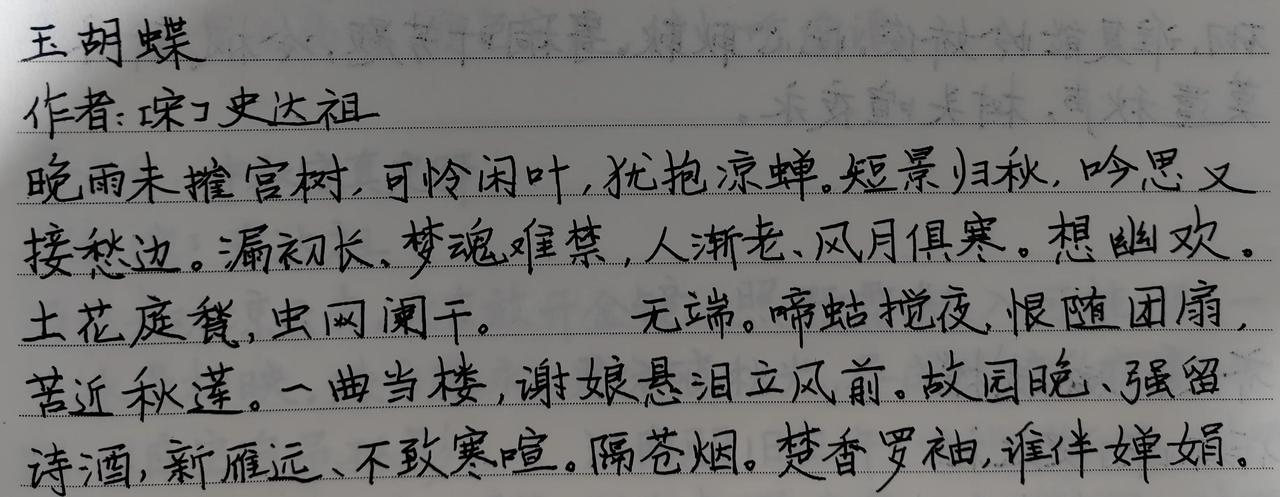 玉胡蝶
作者:[宋]史达祖
晚雨未摧宫树,可怜闲叶,犹抱凉蝉。短景归秋,吟思又
接愁边。漏初长、梦魂难禁,人渐老、风月俱寒。想幽欢。
土花庭甃,虫网阑干。 无端。啼蛄搅夜,恨随团扇,
苦近秋莲。一曲当楼,谢娘悬泪立风前。故园晚、强留
诗酒,新雁远、不致寒喧。隔苍烟。楚香罗袖,谁伴婵娟。